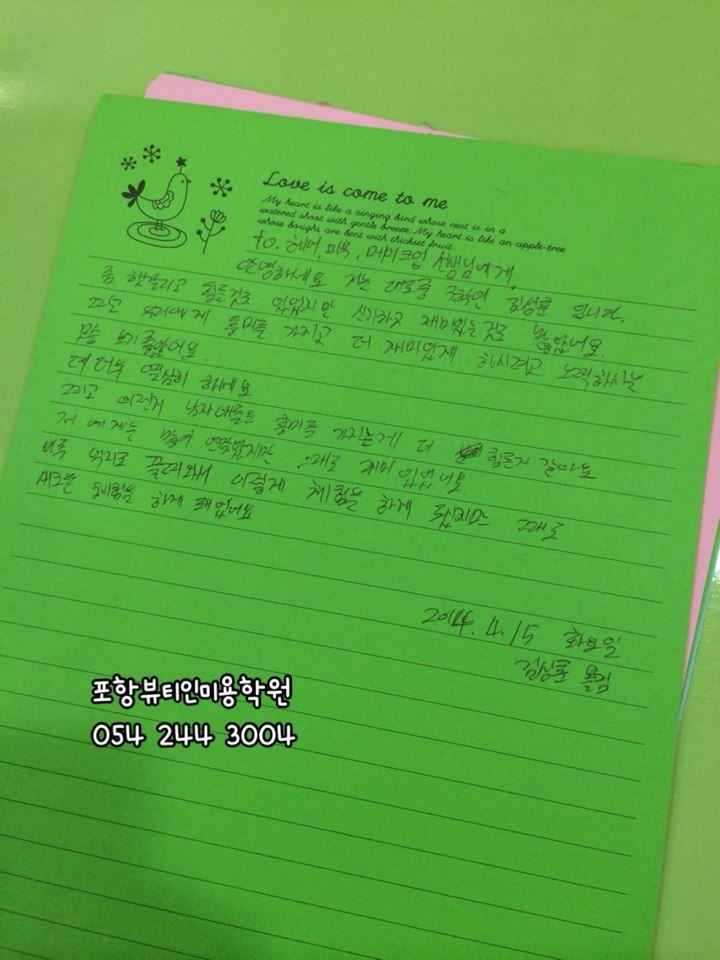 Love is come to me
My heart is like a singing bird whose nest is in a
watered shoot with gentle breeze. My heart is like an apple-tree
whose boughs are bent with thickset fruit
to. 헤어, 피부, 메이크업 선생님에게.
안녕하세요 저는 김성훈 입니다.
좀 헷갈리고 힘든것도 있었지만 신기하고 재미있는것도 많았어요.
흥미를 가지고 더 재미있게 하시려고 노력하시는
보기 좋았어요.
더 더욱 열심히 하세요
그리고 이런거 남자애들은 흥미를 가지는게 더 힘든지 같아요
저 에게는 많이 그래도 재미 있었어요.
비록 억지로 끌려와서 이렇게 체험을 하게 됬지만 그래도
하게 돼었어요
2014. 4. 15 화요일
김성훈 올림
포항뷰티인미용학원
054 244 3004